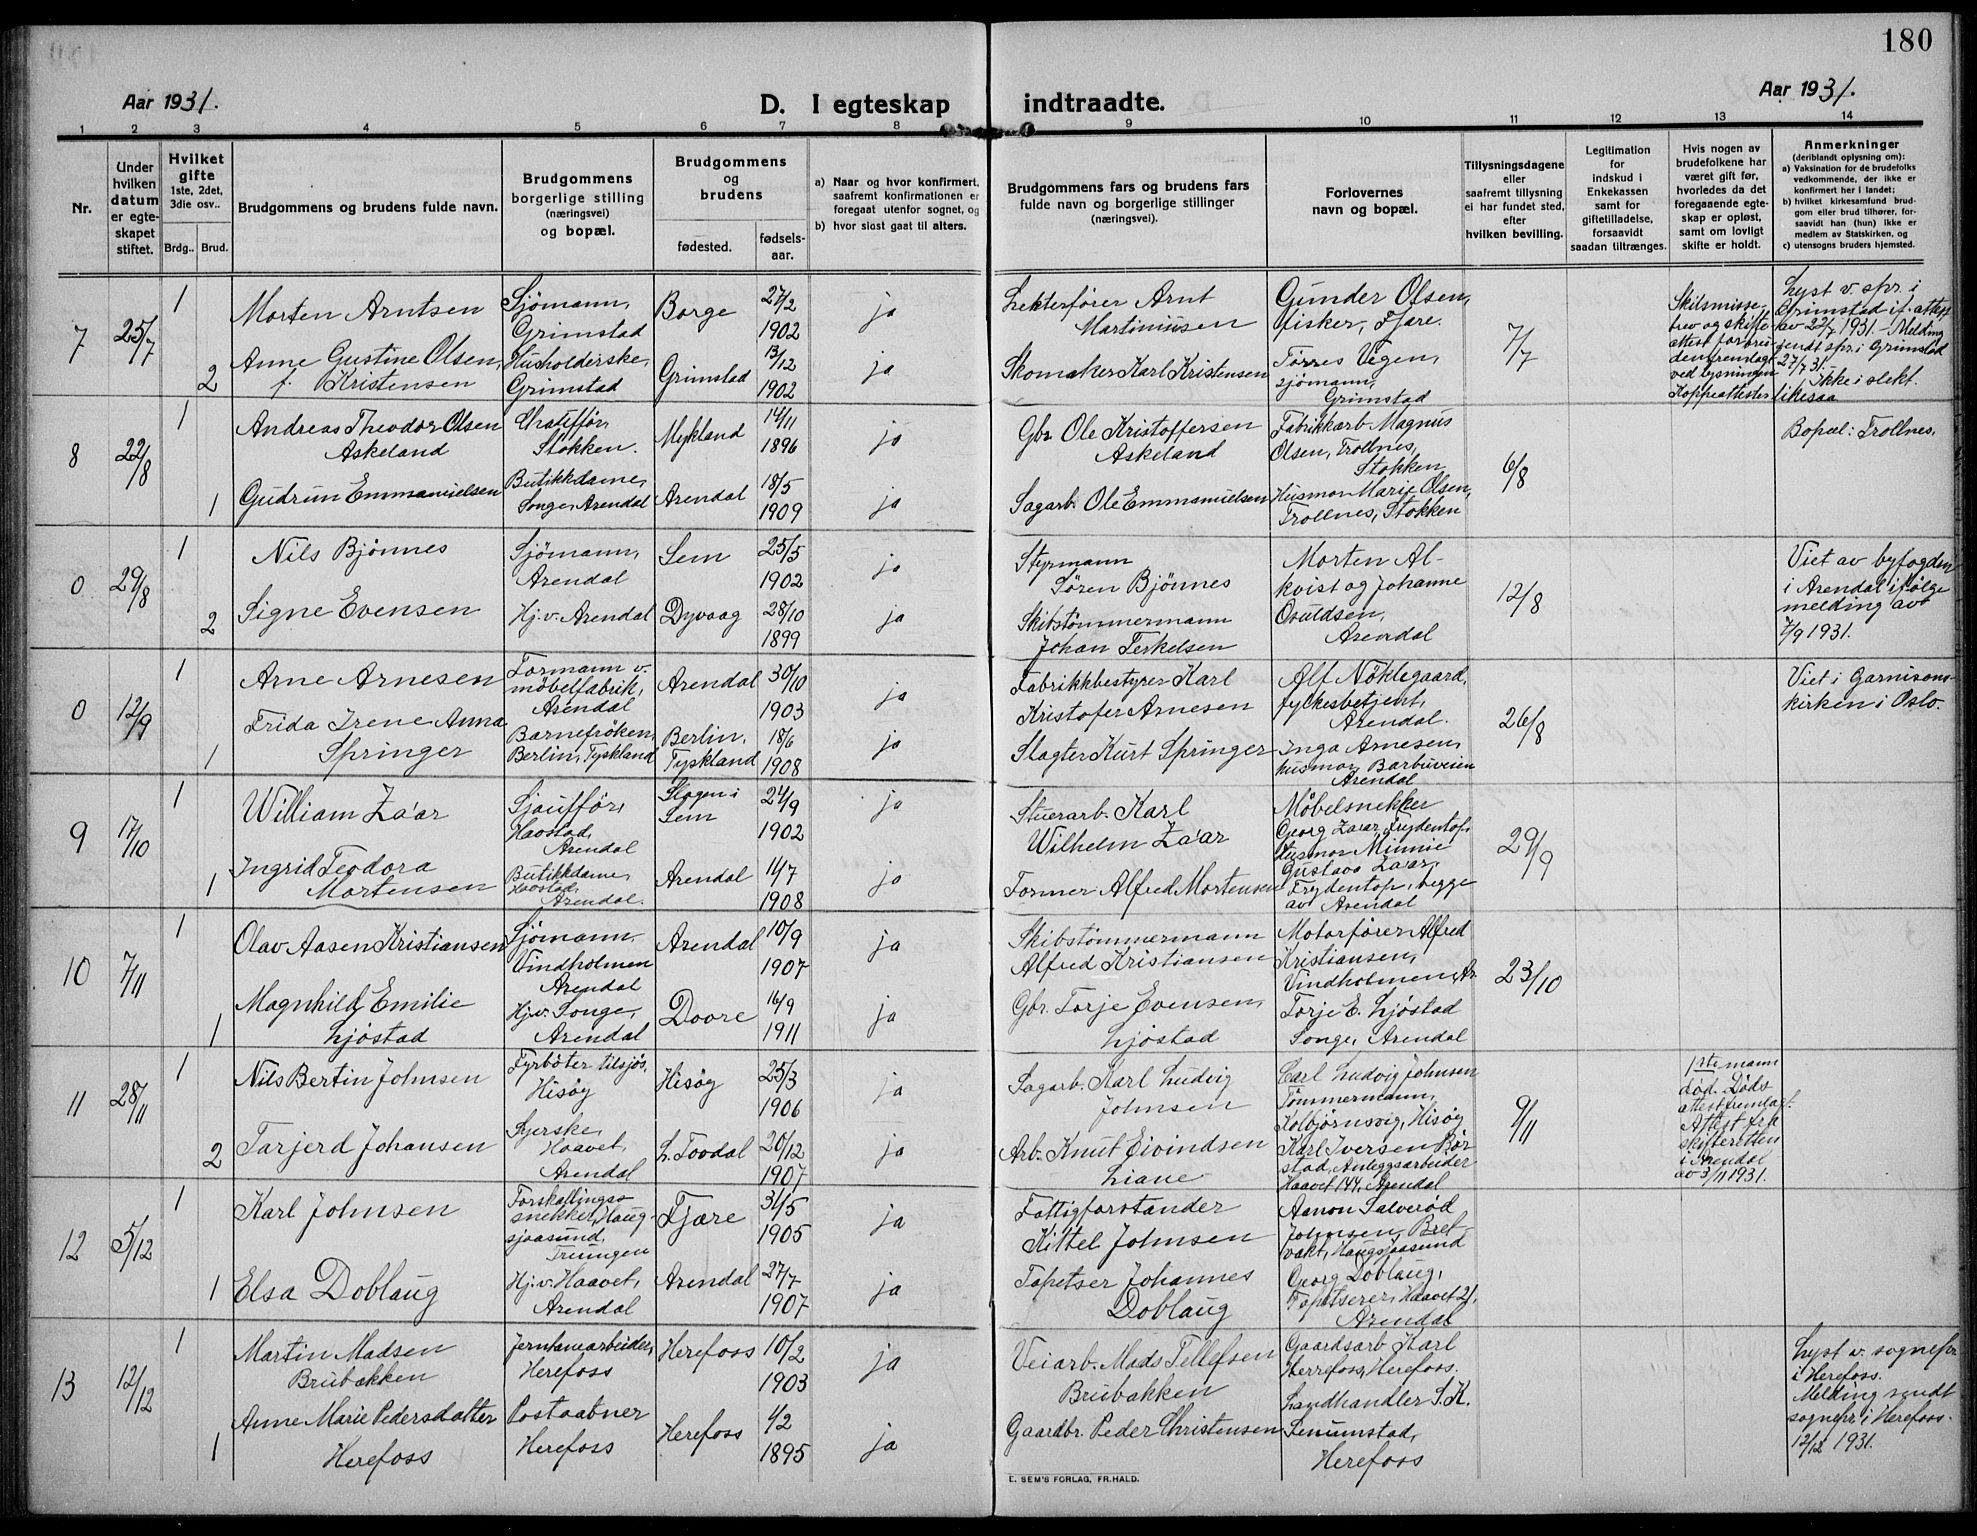 180
Aar 1931.
D. I egteskap indtraadte.
Aar 1931.
1 2 3 4 5 6 7 8 9 10 11 12 13 14
Nr.
Under
hvilken
datum
er egte-
skapet
stiftet.
Hvilket
gifte
1ste, 2det,
3die osv..
Brdg.. Brud.
Brudgommens og brudens fulde navn.
Brudgommens
borgerlige stilling
(næringsvei)
og bopæl.
Brudgommens
og
brudens
fødested.
fødsels-
aar.
a) Naar og hvor konfirmert,
saafremt konfirmationen er
foregaat utenfor sognet, og
b) hvor sidst gaat til alters.
Brudgommens fars og brudens fars
fulde navn og borgerlige stillinger
(næringsvei).
Forlovernes
navn og bopæl.
Tillysningsdagene
eller
saafremt tillysning
ei har fundet sted,
efter
hvilken bevilling.
Legitimation
for
indskud i
Enkekassen
samt for
giftetilladelse,
forsaavidt
saadan tiltrænges.
Hvis nogen av
brudefolkene har
været gift før,
hvorledes da det
foregaaende egte-
skap er opløst,
samt om lovligt
skifte er holdt.
Anmerkninger
(deriblandt oplysning om):
a) Vaksination for de brudefolks
vedkommende, der ikke er
konfirmert her i landet;
b) hvilket kirkesamfund brud-
gom eller brud tilhører, for-
saavidt han (hun) ikke er
medlem av Statskirken, og
c) utensogns bruders hjemsted.
7
25/7
1
Morten Arntsen
Sjömann,
Grimstad
Borge
27/2
1902
ja
Lekterfører Arnt
Martiniusen
Gunder Olsen,
fisker, Fjære.
7/7
2
Anne Gustine Olsen,
f. Kristensen
Husholderske,
Grimstad
Grimstad
13/12
1902
ja
Skomaker Karl Kristensen
Tørres Vegen,
sjömann,
Grimstad
Skilsmisse-
brev og skifte-
attest for bru-
den fremlagt
ved lysningen
Koppeattester likesaa
Lyst v. spr. i
Grimstad if. attest
av 22/7 1931. - Melding
sendt spr. i Grimstad
27/7 31.
Ikke i slekt.
8
22/8
1
Andreas Theodor Olsen
Askeland
Chaufför,
Stokken.
Mykland
14/11
1896
ja
Gbr. Ole Kristoffersen
Askeland
Fabrikkarb. Magnus
Olsen, Trollnes,
Stokken
6/8
Bopæl: Trollnes.
1
Gudrun Emmanuelsen
Butikkdame,
Songe, Arendal
Arendal
18/5
1909
ja
Sagarb. Ole Emmanuelsen
Husmor Marie Olsen,
Trollnes, Stokken
0
29/8
1
Nils Bjönnes
Sjömann,
Arendal
Sem
25/5
1902
ja
Styrmann
Sören Bjönnes
Morten Al-
kvist og Johanne
Osuldsen,
Arendal
12/8
Viet av byfogden
i Arendal ifølge
melding av
7/9 1931.
2
Signe Evensen
Hj.v. Arendal
Dyvaag
28/10
1899
ja
Skibstömmermann
Johan Terkelsen
0
12/9
1
Arne Arnesen
Formann v.
möbelfabrik,
Arendal
Arendal
30/10
1903
ja
Fabrikkbestyrer Karl
Kristofer Arnesen
Alf Nöklegaard,
fylkesbetjent,
Arendal.
26/8
Viet i Garnisons-
kirken i Oslo.
1
Frida Irene Anna
Springer
Barnefröken,
Berlin, Tyskland
Berlin,
Tyskland
18/6
1908
ja
Slagter Kurt Springer
Inga Arnesen,
husmor, Barbuveien
Arendal
9
17/10
1
William Za'ar
Sjaufför,
Haastad,
Arendal
Slagen i
Sem
24/9
1902
ja
Stuerarb. Karl
Wilhelm Za'ar
Möbelsnekker
Georg Zaar, Frydentop,
Husmor Minnie
Gustava Zaar,
Frydentop, begge
av Arendal
29/9
1
Ingrid Teodora
Mortensen
Butikkdame,
Haastad,
Arendal.
Arendal
11/7
1908
ja
Former Alfred Mortensen
10
7/11
1
Olav Aasen Kristiansen
Sjömann,
Vindholmen
Arendal
Arendal
10/9
1907
ja
Skibstömmermann
Alfred Kristiansen
Motorfører Alfred
Kristiansen,
Vindholmen, Ar.
23/10
1
Magnhild Emilie
Ljöstad
Hj.v. Songe,
Arendal
Doore
16/9
1911
ja
Gbr. Torje Evensen,
Ljöstad
Torje E. Ljöstad
Songe, Arendal
11
28/11
1
Nils Bertin Johnsen
Fyrböter tilsjös,
Hisöy
Hisöy
25/3
1906
ja
Sagarb. Karl Ludvig
Johnsen
Carl Ludvig Johnsen
Tömmermann,
Kolbjörnsvig, Hisöy
9/11
1ste mann
död. Döds-
attest fremlagt.
Attest fra
skifteretten
i Arendal
av 3/11 1931.
2
Tarjerd Johansen
Syerske,
Haavet,
Arendal
L. Tovdal
20/12
1907
ja
Arb. Knut Eivindsen
Liane
Karl Iversen Bör-
stad, Anleggsarbeider
Haavet 144, Arendal
12
5/12
1
Karl Johnsen
Forskallings-
snekker, Haug-
sjaasund,
Treungen
Fjære
31/5
1905
ja
Fattigforstander
Kittel Johnsen
Aanon Salveröd
Johnsen, Bret-
vakt, Haugsjaasund
1
Elsa Doblaug
Hj.v. Haavet,
Arendal
Arendal
27/7
1907
ja
Tapetser Johannes
Doblaug
Georg Doblaug,
Tapetserer, Haavet 21,
Arendal
13
12/12
1
Martin Madsen
Brubakken
Jernbanearbeider,
Herefoss
Herefoss
10/2
1903
ja
Veiarb. Mads Tellefsen
Brubakken
Gaardsarb. Karl
Herrefoss, Herefoss.
Lyst v. sognepr.
i Herefoss.
Melding sendt
sognepr. i Herefoss.
12/12 1931.
1
Anne Marie Pedersdatter
Herefoss
Postaabner
Herefoss
Herefoss
4/2
1895
ja
Gaardbr. Peder Christensen
Landhandler S. K.
Senumstad,
Herefoss
E. SEM'S FORLAG, FR.HALD.